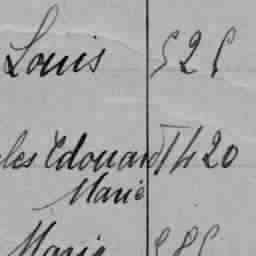 Louis 525
les Edouard 1420
Marie
Marie 585